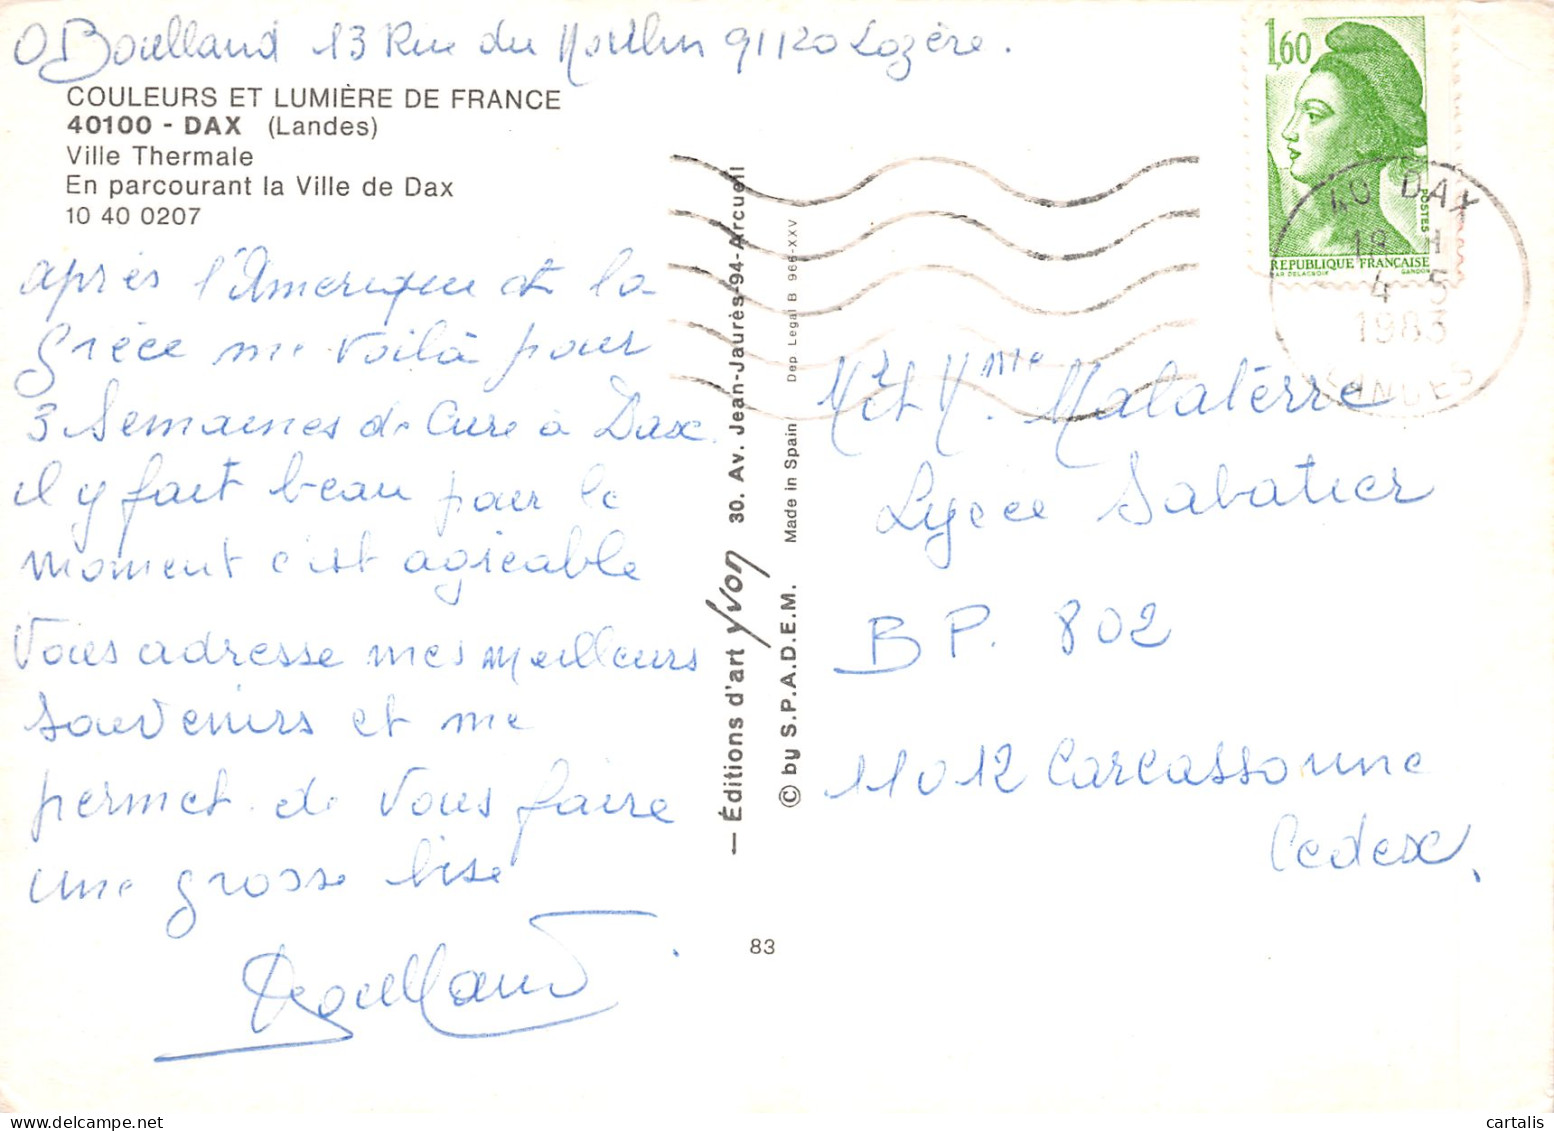 O Boelland 13 Rue du Moulin 91120 Lozère.
COULEURS ET LUMIÈRE DE FRANCE
40100 - DAX (Landes)
Ville Thermale
En parcourant la Ville de Dax
10 40 0207
après l'Amerique et la
Grèce me voilà pour
3 Semaines de Cure à Dax.
il y fait beau pour le
moment c'est agréable
Vous adresse mes meilleurs
souvenirs et me
permet de vous faire
une grosse bise
Boelland
— Éditions d'art Yvon 30. Av. Jean-Jaurès-94-Arcueil
© by S.P.A.D.E.M. Made in Spain Dep Legal B 966-XXV
83
1,60
POSTES
RÉPUBLIQUE FRANÇAISE
DELACROIX GANDON
40 DAX
18 H
4 - 5
1983
LANDES
Mr et Mme Malaterre
Lycée Sabatier
BP. 802
11012 Carcassonne
Cedex.
cartalis